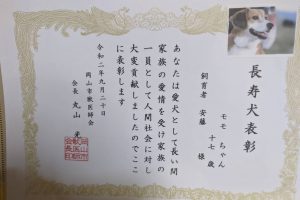 長寿犬表彰
モモちゃん
十七歳
飼育者 安藤 様
あなたは愛犬として長い間
家族の愛情を受け家族の
一員として人間社会に対し
大変貢献しましたのでここ
に表彰します
令和二年九月二十日
岡山市獣医師会
会長 丸山